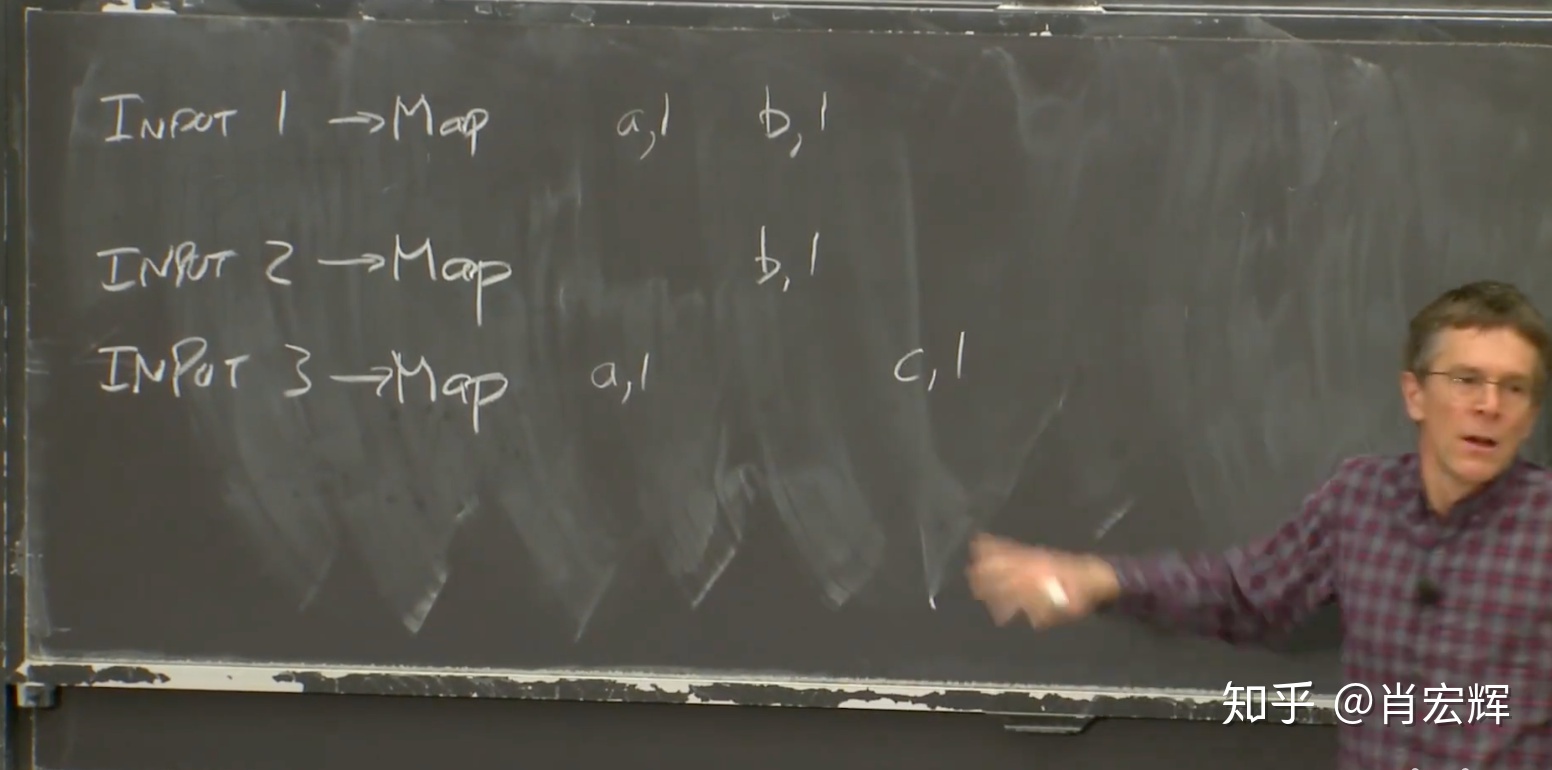 INPUT 1 →Map a,1 b,1
INPUT 2 →Map b,1
INPUT 3 →Map a,1 c,1
知乎 @肖宏辉